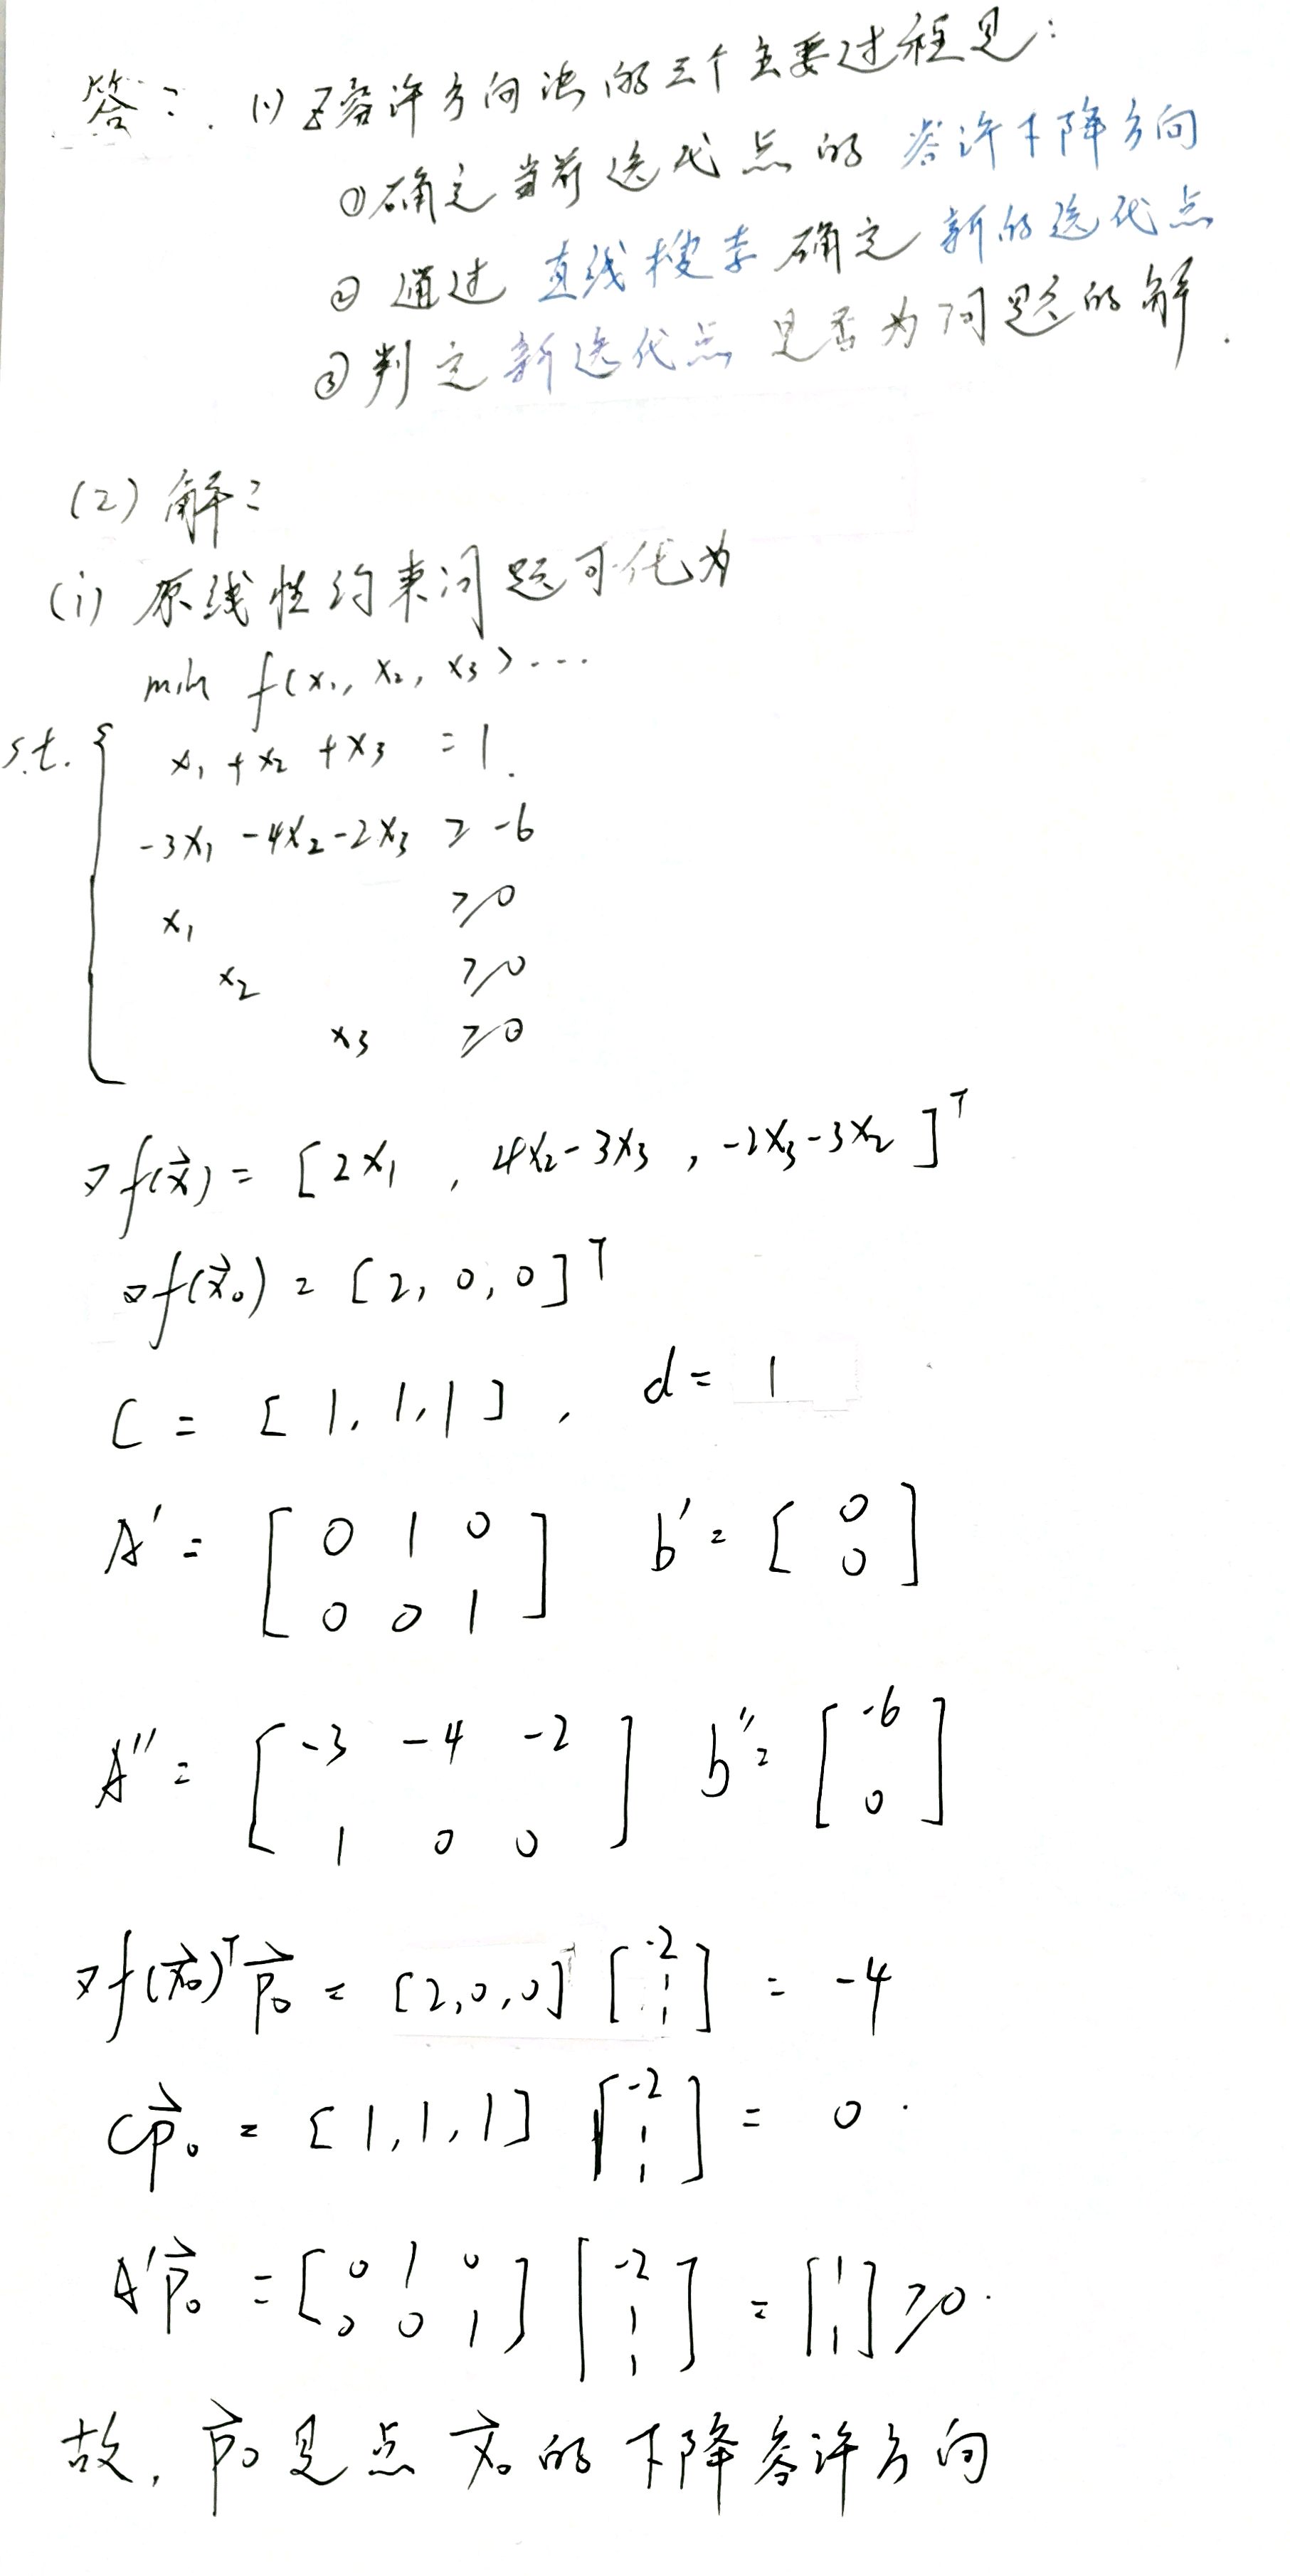 答：. (1) Z容许方向法的三个主要过程是：
①确定当前迭代点的 容许下降方向
② 通过 直线搜索 确定 新的迭代点
③判定 新迭代点 是否为问题的解.
(2) 解：
(i) 原线性约束问题可化为
min f(x₁, x₂, x₃) ...
s.t. { x₁ + x₂ + x₃ = 1.
-3x₁ -4x₂ -2x₃ ≥ -6
x₁ ≥0
x₂ ≥0
x₃ ≥0
∇f(x⃗) = [2x₁ , 4x₂-3x₃ , -2x₃-3x₂ ]ᵀ
∇f(x⃗₀) = [2, 0, 0]ᵀ
C = [1, 1, 1] , d = 1
A' = [0 1 0; 0 0 1] b' = [0; 0]
A'' = [-3 -4 -2; 1 0 0] b'' = [-6; 0]
∇f(x⃗₀)ᵀ p⃗₀ = [2,0,0] [-2; 1; 1] = -4
Cp⃗₀ = [1,1,1] [-2; 1; 1] = 0.
A'p⃗₀ = [0 1 0; 0 0 1] [-2; 1; 1] = [1; 1] ≥0.
故, p⃗₀是点 x⃗₀的下降容许方向